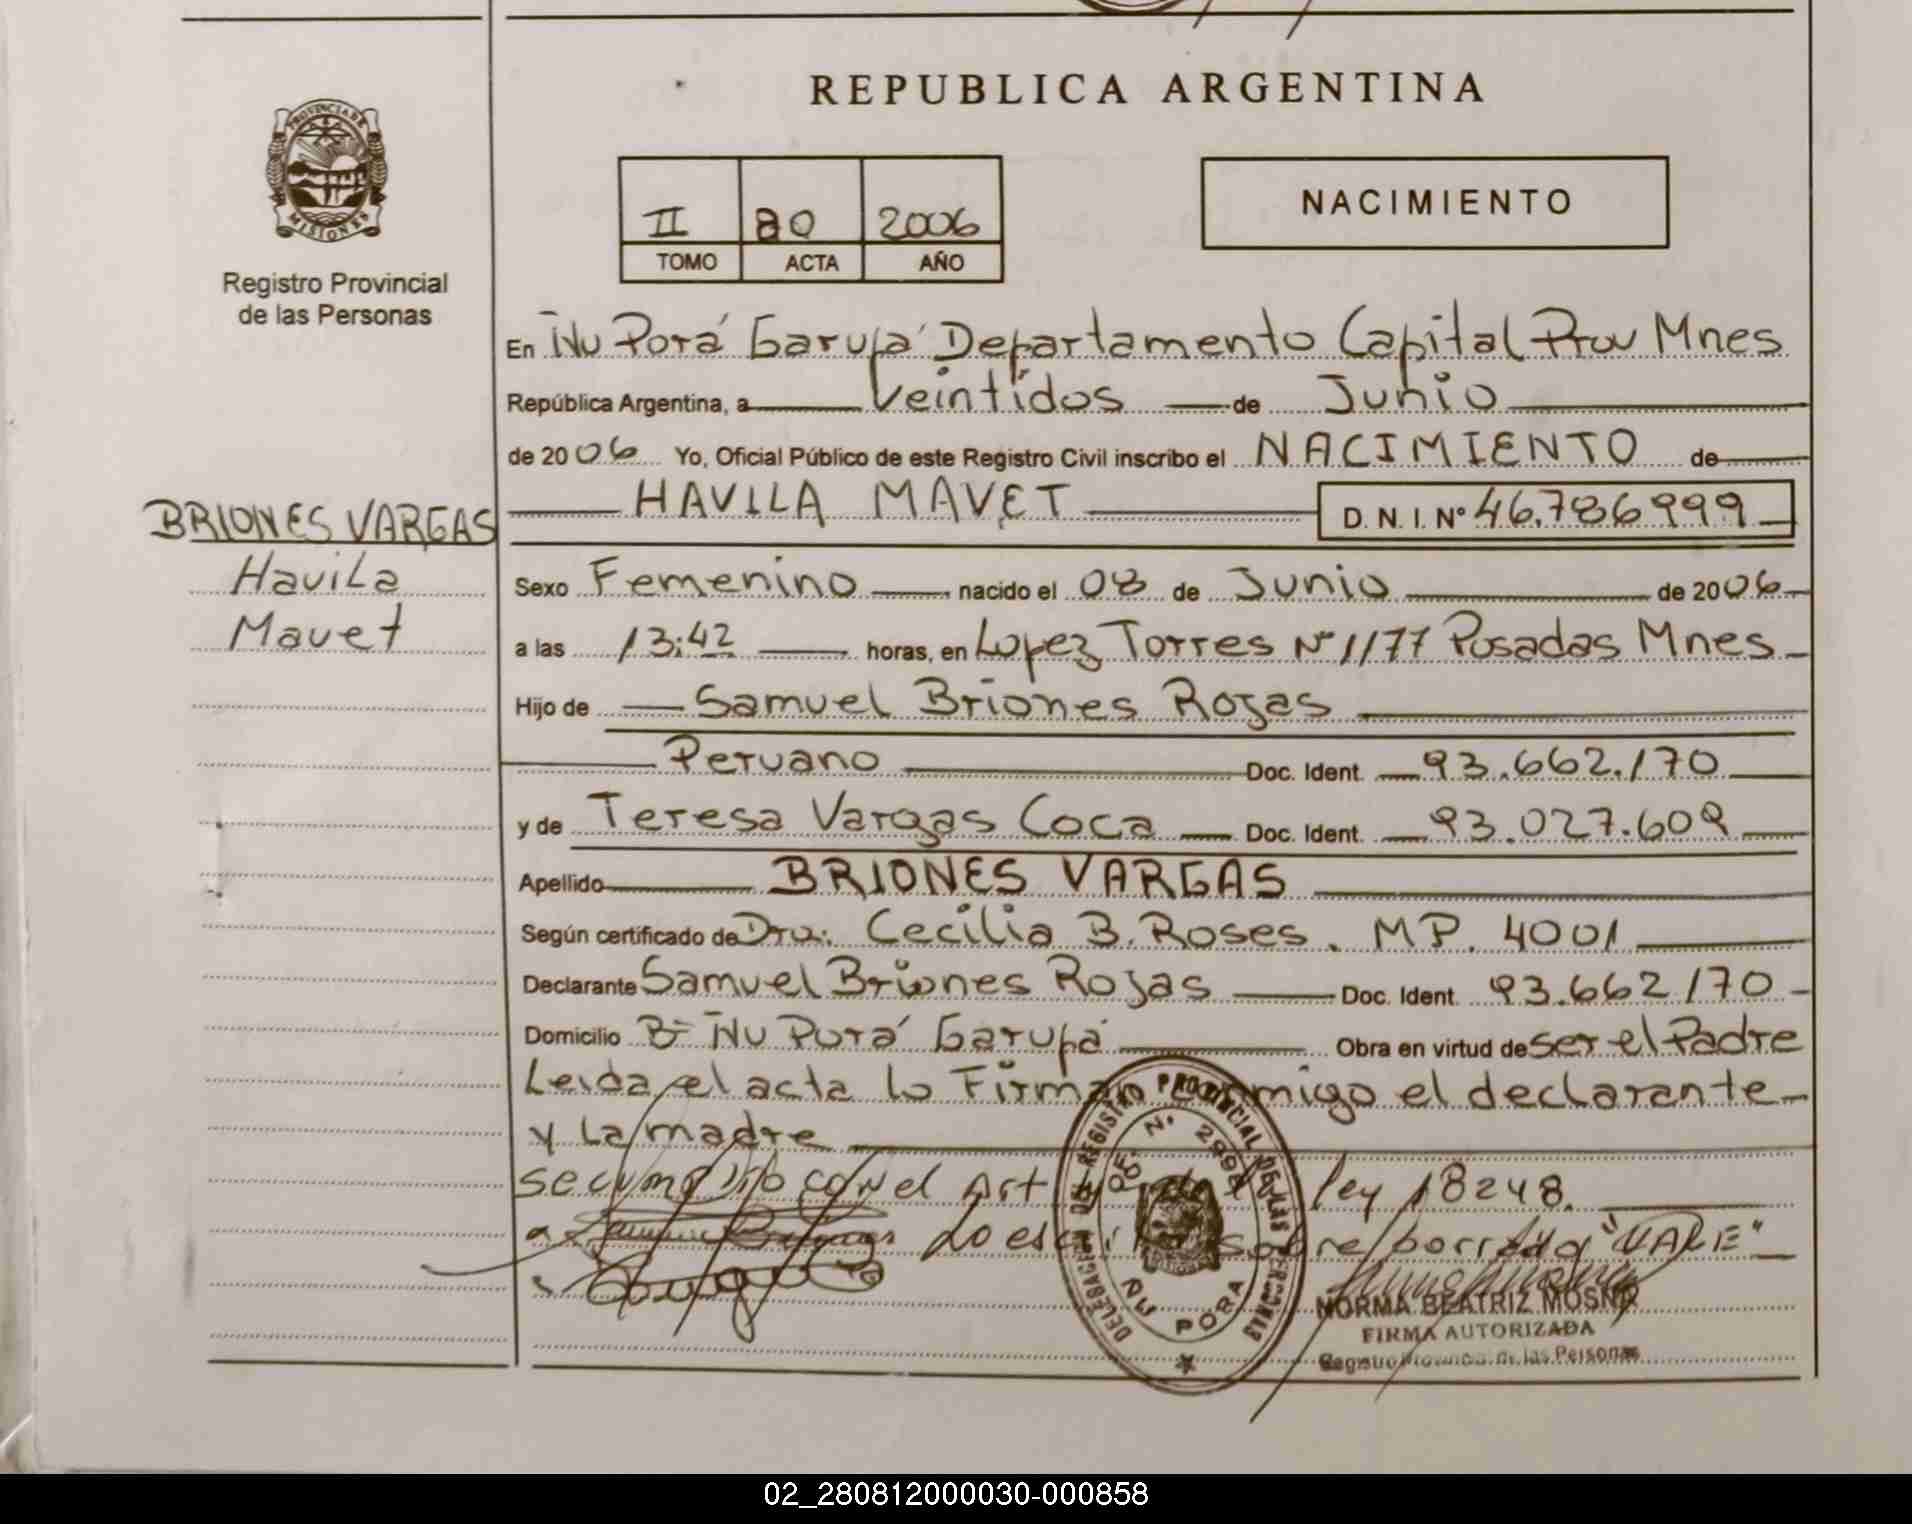 REPUBLICA ARGENTINA
PROVINCIA DE
MISIONES
Registro Provincial
de las Personas
II 80 2006
TOMO ACTA AÑO
NACIMIENTO
En Ñu Porá Garupá Departamento Capital Prov Mnes
República Argentina, a Veintidos de Junio
de 2006 Yo, Oficial Público de este Registro Civil inscribo el NACIMIENTO de
HAVILA MAVET D. N. I. Nº 46.786999
BRIONES VARGAS
Havila
Mavet
Sexo Femenino nacido el 08 de Junio de 2006
a las 13:42 horas, en Lopez Torres Nº 1177 Posadas Mnes
Hijo de Samuel Briones Rojas
Peruano Doc. Ident. 93.662.170
y de Teresa Vargas Coca Doc. Ident. 93.027.609
Apellido BRIONES VARGAS
Según certificado de Dra. Cecilia B. Roses. MP. 4001
Declarante Samuel Briones Rojas Doc. Ident. 93.662170
Domicilio Bº Ñu Porá Garupá Obra en virtud de ser el Padre
Leida el acta lo Firman conmigo el declarante
y la madre
Se cumplio con el Art ley 18248.
Lo escrito sobre borrado "VALE"
DELEGACION DEL REGISTRO PROVINCIAL DE LAS PERSONAS
ÑU PORA
NORMA BEATRIZ MOSNA
FIRMA AUTORIZADA
Registro Provincial de las Personas
02_280812000030-000858